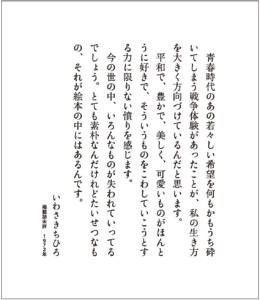 青春時代のあの若々しい希望を何もかもうち砕
いてしまう戦争体験があったことが、私の生き方
を大きく方向づけているんだと思います。
平和で、豊かで、美しく、可愛いものがほんと
うに好きで、そういうものをこわしていこうとす
る力に限りない憤りを感じます。
今の世の中、いろんなものが失われていってる
でしょう。とても素朴なんだけれどたいせつなも
の、それが絵本の中にはあるんです。
いわさきちひろ
1972年